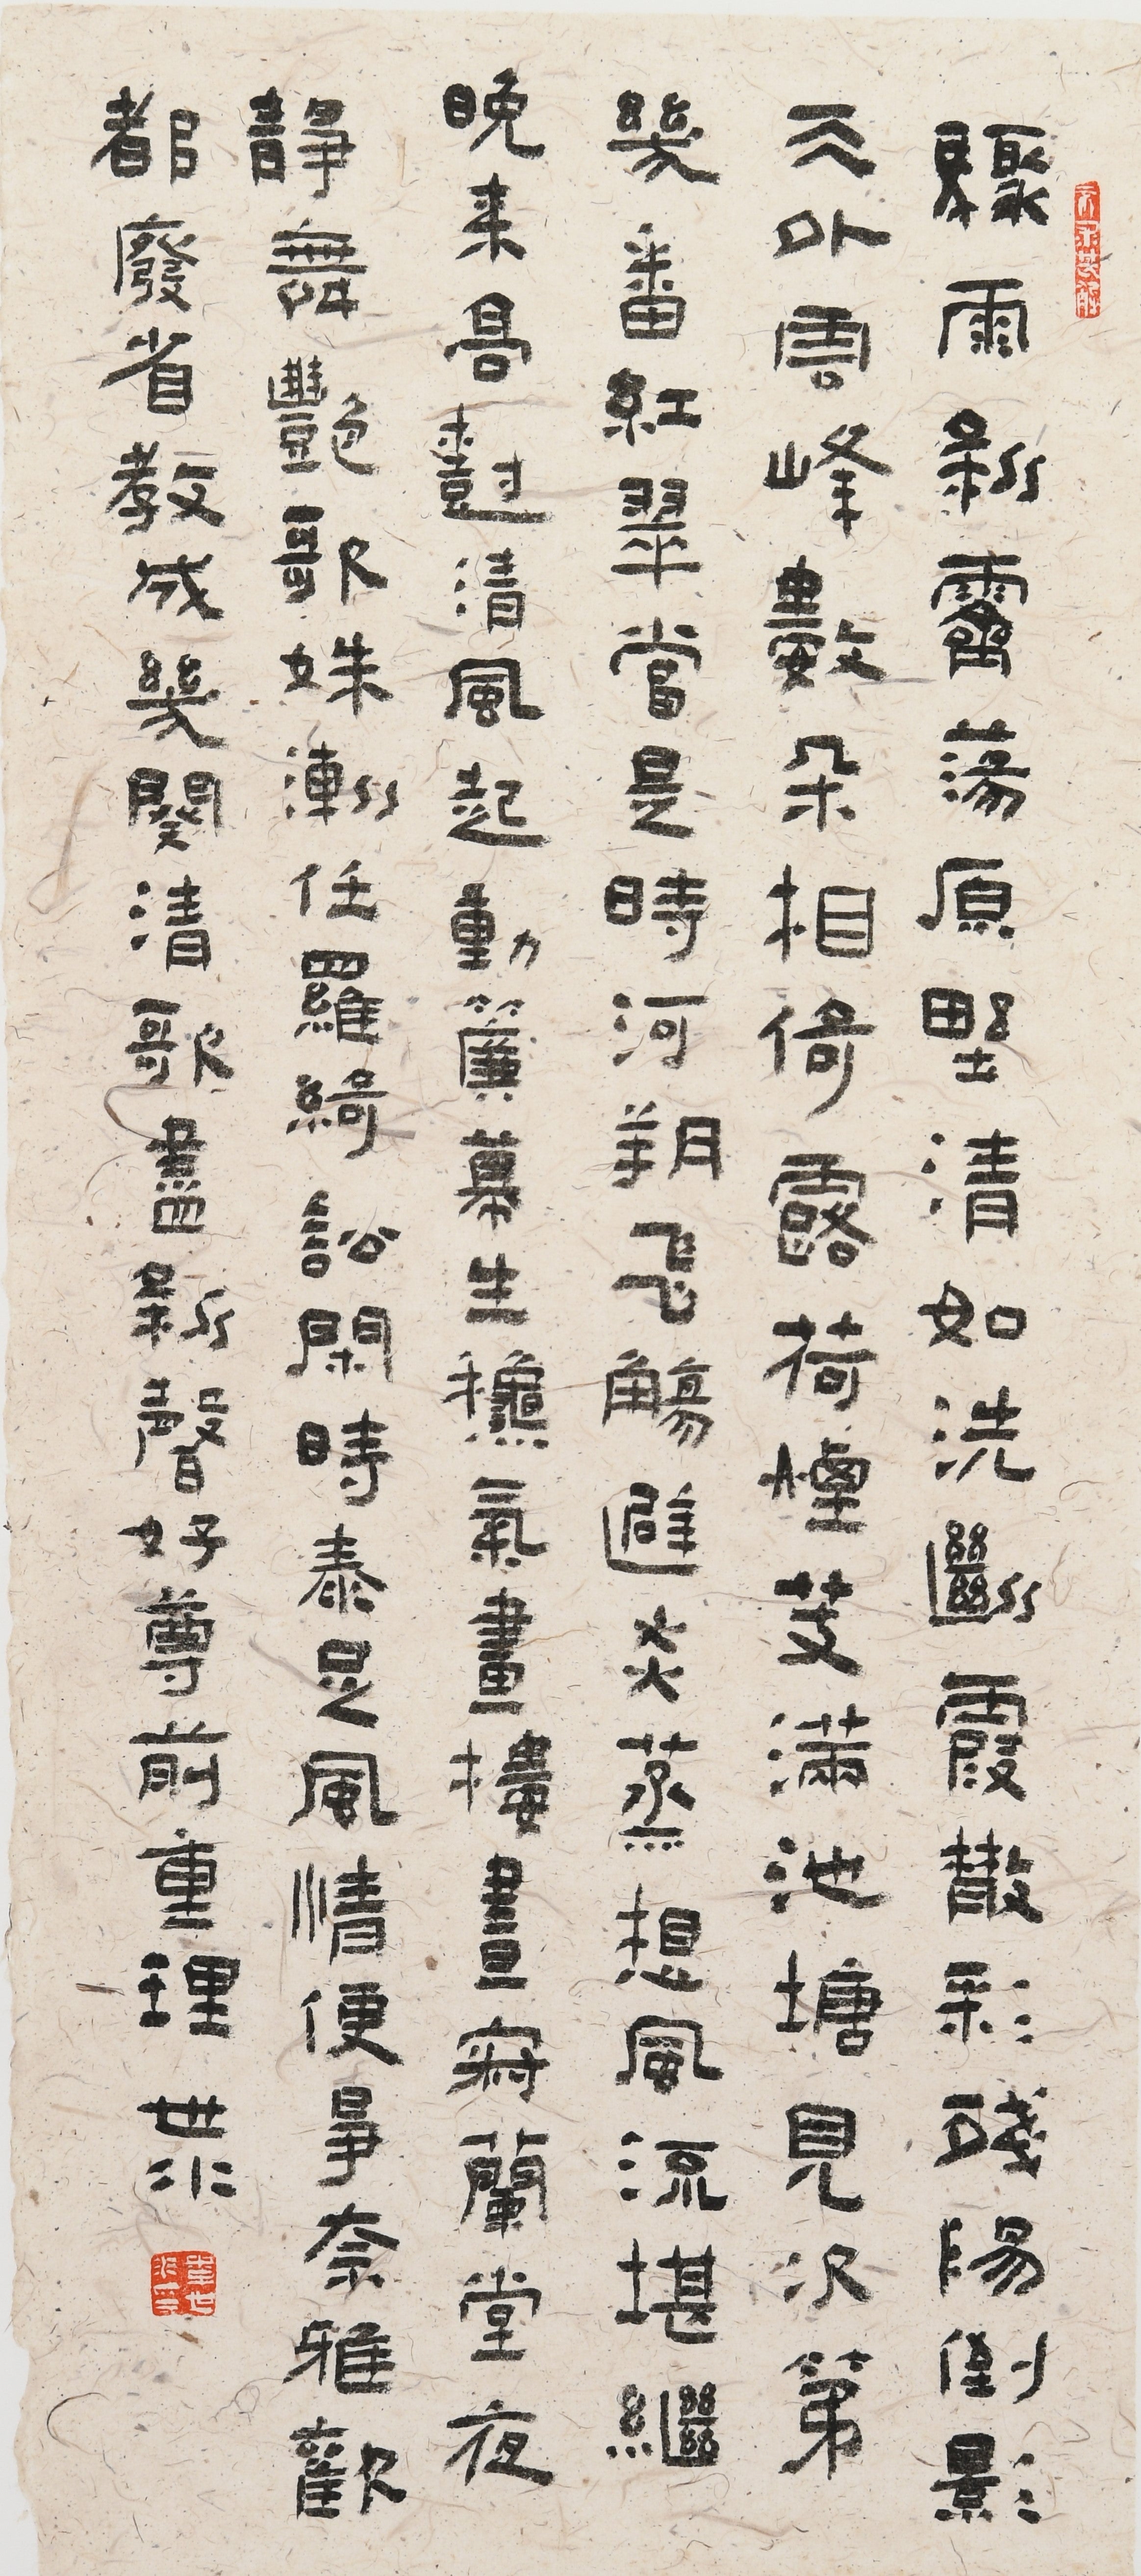 驟雨新霽蕩原野清如洗斷霞散彩殘陽倒影
天外雲峰數朵相倚露荷煙芰滿池塘見次第
幾番紅翠當是時河朔飛觴避炎蒸想風流堪繼
晚来高樹清風起動簾幕生龝氣畫樓晝寂蘭堂夜
靜舞艷歌姝漸任羅綺訟閑時泰足風情便爭奈雅歡
都廢省教成幾闋清歌盡新聲好尊前重理世